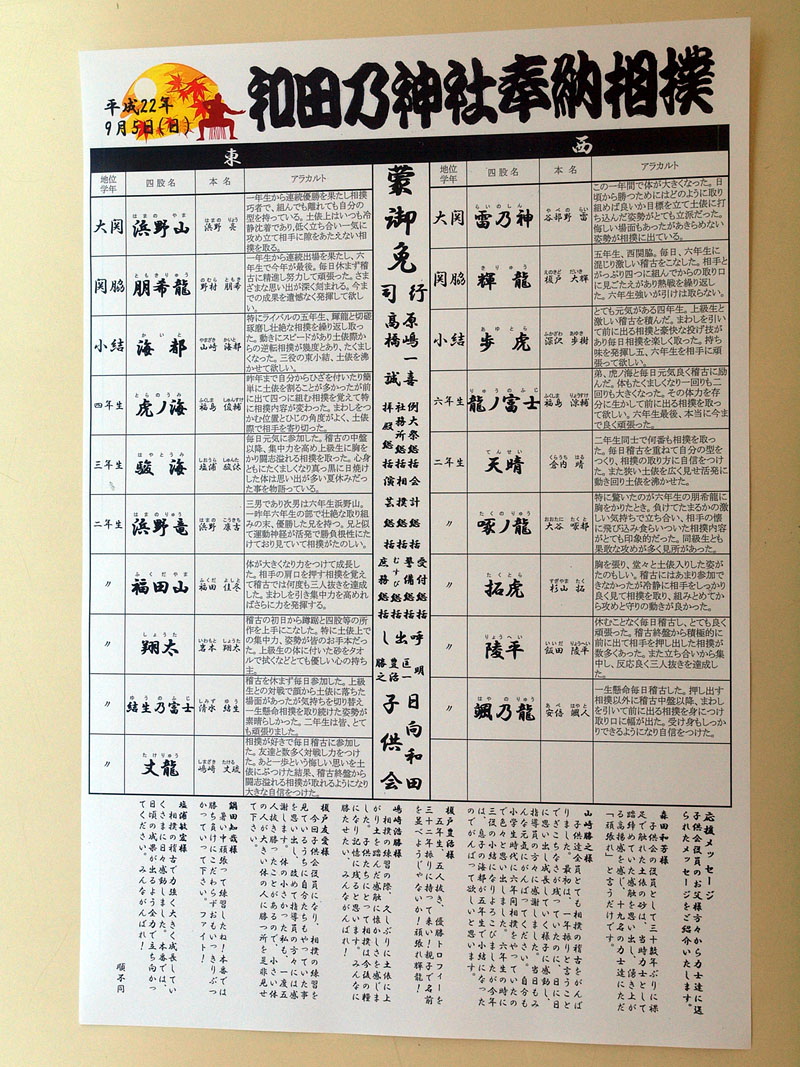 和田乃神社奉納相撲
平成22年
9月5日(日)
東
西
地位
学年
四股名
本名
アラカルト
大関
はまのやま
浜野山
はまの りょう
浜野 長
一年生から連続優勝を果たし相撲
巧者で、組んでも離れても自分の
型を持っている。土俵上はいつも冷
静沈着であり、低く立ち合い一気に
攻め立て相手に隙をあたえない相
撲を取る。
関脇
ともきりゅう
朋希龍
のむら ともき
野村 朋希
一年生から連続出場を果たし、六
年生で今年が最後。毎日休まず稽古
に精進し努力して頑張った。さま
ざまな思い出が深く刻まれる。今ま
での成果を遺憾なく発揮して欲し
い。
小結
かいと
海都
やまざき かいと
山崎 海都
特にライバルの五年生、輝龍と切磋
琢磨し壮絶な相撲を繰り返し取っ
た。動きにスピードがあり土俵際か
らの逆転相撲が幾度とあり、たくま
しくなった。三役の東小結、土俵を沸
かせて欲しい。
四年生
とらのうみ
虎ノ海
ふくしま しゅんすけ
福島 俊輔
昨年まで自分からひざを付いたり簡
単に土俵を割ることが多かったが前
に出て四つに組む相撲を覚えて特
に相撲内容が変わった。まわしをつ
かむ位置とひじの角度がよく、土俵
際で相手を寄り切った。
三年生
はやとうみ
駿海
しおうら しゅんた
塩浦 駿汰
毎日元気に参加した。稽古の中盤
以降、集中力を高め上級生に胸を
かり闘志溢れる相撲を取った。心身
ともにたくましくなり真っ黒に日焼け
した体は思い出が多い夏休みだっ
た事を物語っている。
二年生
はまのりゅう
浜野竜
はまの こうきち
浜野 康吉
三男であり次男は六年生浜野山。
一昨年六年生の部で壮絶な取り組
みの末、優勝した兄を持つ。兄と似
て運動神経が活発で勝負根性にた
けており見ていて相撲がたのしい。
〃
ふくだやま
福田山
ふくだ よしき
福田 佳冬
体が大きくなり力をつけて成長し
た。相手の肩口を押す相撲を覚え
て稽古では何度も三人抜きを達成し
た。まわしを引き集中力を高めれ
ばさらに力を発揮する。
〃
しょうた
翔太
いわもと しょうた
岩本 翔太
稽古の初日から蹲踞と四股等の所
作を上手にこなした。特に土俵上で
の集中力、姿勢が皆のお手本だっ
た。上級生の体に付いた砂をタオ
ルで拭くなどとても優しい心の持ち
主。
〃
ゆうのふじ
結生乃富士
しみず ゆう
清水 結生
稽古を休まず毎日参加した。上級
生との対戦で顔から土俵に落ちた
場面があったが気持ちを切り替え
一生懸命相撲を取り続けた姿勢が
素晴らしかった。二年生は皆、とて
も頑張りました。
〃
たけりゅう
丈龍
しまざき たける
嶋崎 丈琉
相撲が好きで毎日稽古に参加し
た。友達と数多く対戦し力をつけ
た。あと一歩という悔しい思いを土
俵にぶつけた結果、稽古終盤から
闘志溢れる相撲が取れるようになり
大きな自信をつけた。
蒙御免
行司
原嶋一喜
高橋誠
例大祭総括
社務所総括
拝殿総括
相撲総括
会計総括
演芸総括
受付総括
警備総括
むすび総括
庶務総括
呼出し
匡一 明
豊治
勝之
日向和田
子供会
地位
学年
四股名
本名
アラカルト
大関
らいのしん
雷乃神
やべの らい
谷部野 雷
この一年間で体が大きくなった。日
頃から勝つためにはどのように取り
組めば良いか目標を立て土俵に打
ち込んだ姿勢がとても立派だった。
悔しい場面もあったがあきらめない
姿勢が相撲に出ている。
関脇
きりゅう
輝龍
えのきど だいき
榎戸 大輝
五年生、西関脇。毎日、六年生に
混じり激しい稽古をこなした。相手と
がっぷり四つに組んでからの取り口
に見ごたえがあり熱戦を繰り返し
た。六年生強いが引けは取らない。
小結
あゆとら
歩虎
ふかざわ あゆき
深沢 歩樹
とても元気がある四年生。上級生と
激しい稽古を積んだ。まわしを引い
て前に出る相撲と豪快な投げ技が
あり毎日相撲を楽しく取った。持ち
味を発揮し五、六年生を相手に頑
張って欲しい。
六年生
りゅうのふじ
龍ノ富士
ふくしま りょうすけ
福島 涼輔
弟、虎ノ海と毎日元気良く稽古に励
んだ。体もたくましくなり一回りも二
回りも大きくなった。その体力を存
分に生かして前に出る相撲を取っ
て欲しい。六年生最後、本当に今ま
で良く頑張った。
二年生
てんせい
天晴
くらうち はる
倉内 晴
二年生同士で何番も相撲を取っ
た。毎日稽古を重ねて自分の型を
つくり、相撲の取り方に自信をつけ
た。また狭い土俵を広く見せ活発に
動き回り土俵を沸かせた。
〃
たくのりゅう
啄ノ龍
おおたに たくと
大谷 啄都
特に驚いたのが六年生の朋希龍に
胸をかりたとき。負けてたまるかの激
しい気持ちで立ち合い、相手の懐
に飛び込み食らいついた相撲内容
がとても印象的だった。同級生とも
果敢な攻めが多く見所があった。
〃
たくとら
拓虎
すぎやま たく
杉山 拓
胸を張り、堂々と土俵入りした姿が
たのもしい。稽古にはあまり参加で
きなかったが冷静に相手をしっかり
良く見て相撲を取り、組みとめてか
ら攻めと守りの動きが良かった。
〃
りょうへい
陵平
いいだ りょうへい
飯田 陵平
休むことなく毎日稽古し、とても良く
頑張りました。稽古終盤から積極的に
前に出て相手を押し出した相撲が
数多くあった。また立ち合いから集
中し、反応良く三人抜きを達成し
た。
〃
はやのりゅう
颯乃龍
あべ はやと
安倍 颯人
一生懸命毎日稽古した。押し出す
相撲以外に稽古中盤以降、まわし
を引いて前に出る相撲を身につけ
取り口に幅が出た。受け身もしっか
りできるようになり自信をつけた。
応援メッセージ
子供会役員のお父様方々から力士達に送
られたメッセージをご紹介いたします。
森田和芳様
子供会の役員として三十数年ぶりに裸
足で触れた土俵の砂は、当時力士として
踏締めていた感触を思い出し、湧き上が
る高揚感を感じ、十九名の力士達にただ
「頑張れ」と言うだけです。
山崎勝之様
子供達全員とても相撲をがんば
りました。最初は、一年振りと言うこと
でぎこちなさが残っていたのに、日に日
に成長して行く様子に感動し、
指導員の方々に感謝しました。当日もみ
んな元気にがんばってください。自分も
小学生時代に六年間相撲をやっていたの
で色々と思い出しました。六年生の時に
三役の小結になりよろこびましたが今年
は、息子の海都が五年生で小結になった
のでがんばって欲しいと思います。
榎戸豊治様
五年生、五人抜き、優勝トロフィーを
三十二年振りに持って来い！親子で名前
を並べようじゃないか！頑張れ輝龍！
嶋崎浩勝様
相撲の練習の際、久しぶりに土俵に上
がり土を踏んだ感触に懐かしさを感じま
した。子供たちにとって相撲は今後の糧
になり記憶に残ると思います。みんなに
勝たせたい。みんながんばれ！
榎戸友愛様
今回子供会役員になり、相撲の練習を
見ているうちに自分たちもやっていた事
を思い出し改めて指導員の方々には感
謝します。体の小さかった私も、一度五
人抜き勝ったことがあるので、小さい体
の人が大きい体の人に勝つ所を是非見せ
て下さい。
鍋田知哉様
暑い中頑張って練習したね！本番では
勝ち負けにこだわらずおもいっきりぶつ
かっていって下さい。ファイト！
塩浦敏宏様
相撲の稽古で力強く大きく成長してい
くさまに日々感動しました。本番では、
日頃の成果が出るよう全力で立ち向かっ
てください。みんながんばれ！
順不同